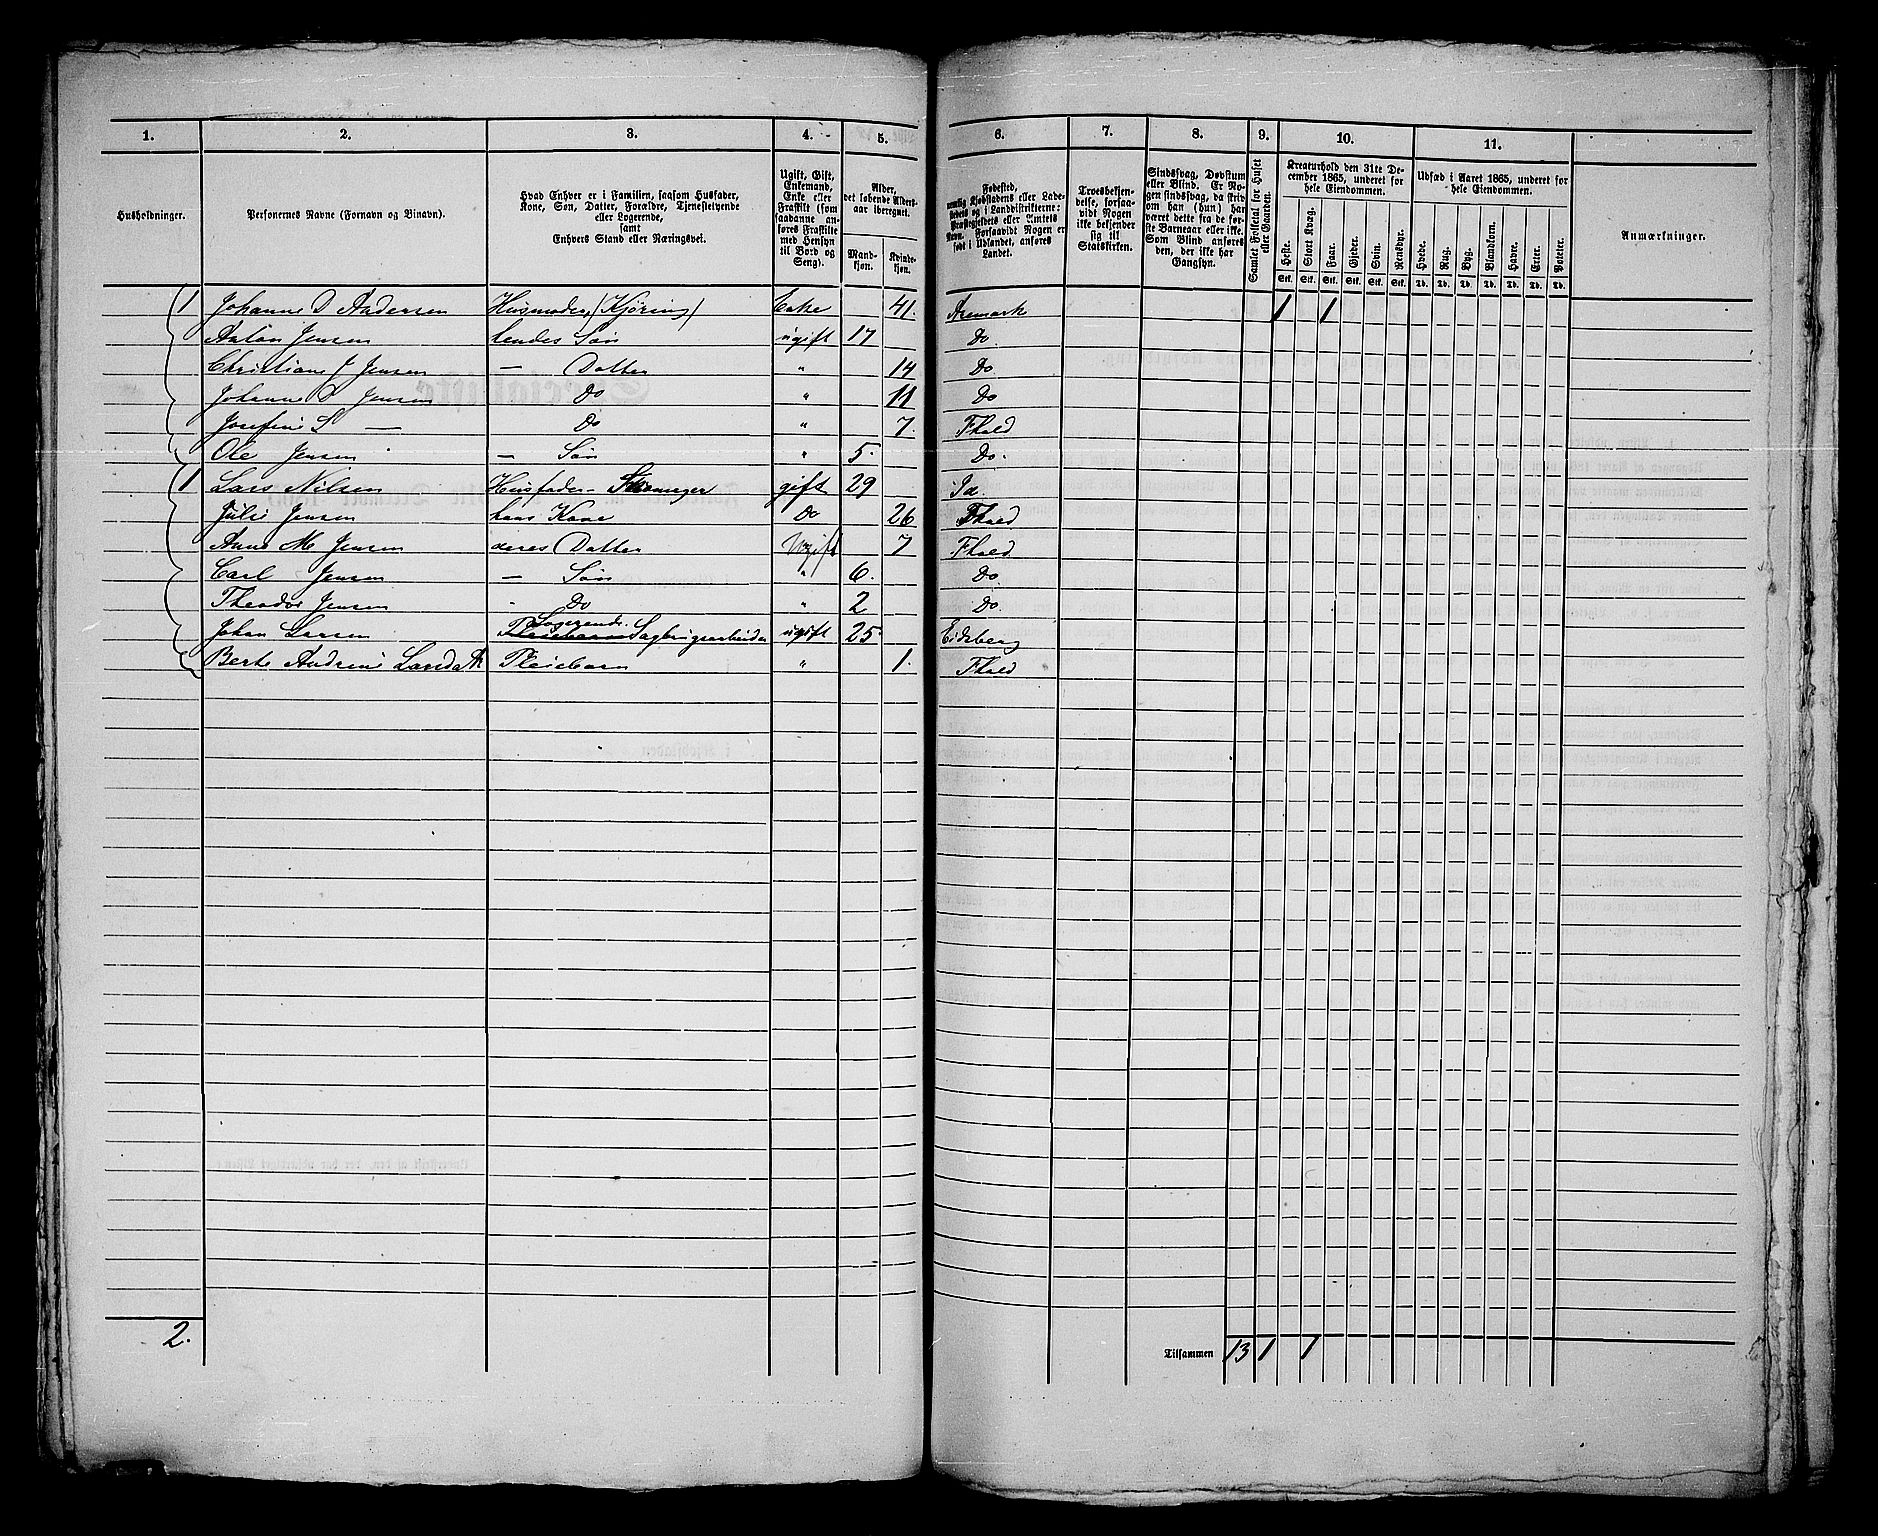 1. 2. 3. 4. 5. 6. 7. 8. 9. 10. 11.
Husholdninger.
Personernes Navne (Fornavn og Binavn).
Hvad Enhver er i Familien, saasom Husfader,
Kone, Søn, Datter, Forældre, Tjenestetyende
eller Logerende,
samt
Enhvers Stand eller Næringsvei.
Ugift, Gift,
Enkemand,
Enke eller
Fraskilt (som
saadanne an-
føres Fraskilte
med Hensyn
til Bord og
Seng).
Alder,
det løbende Alders-
aar iberegnet.
Mand-
kjøn.
Kvinde-
kjøn.
Fødested,
nemlig Kjøbstadens eller Lade-
stedets og i Landdistrikterne:
Præstegjeldets eller Amtets
Navn. Forsaavidt Nogen er
født i Udlandet, anføres
Landet.
Troesbekjen-
delse, forsaa-
vidt Nogen
ikke bekjender
sig til
Statskirken.
Sindssvag, Døvstum
eller Blind. Er No-
gen sindssvag, da skriv
om han (hun) har
været dette fra de før-
ste Barneaar eller ikke.
Som Blind anføres
den, der ikke har
Gangsyn.
Samlet Folketal for Huset
eller Gaarden.
Kreaturhold den 31te De-
cember 1865, underet for
hele Eiendommen.
Heste. Stort Kvæg. Faar. Gjeder. Svin. Rensdyr.
Stk. Stk. Stk. Stk. Stk. Stk.
Udsæd i Aaret 1865, underet for
hele Eiendommen.
Hvede. Rug. Byg. Blandkorn. Havre. Erter. Poteter.
Td. Td. Td. Td. Td. Td. Td.
Anmærkninger.
1 Johanne D Andersen Husmoder (Kjøring) Enke 41. Aremark 1 1
Anton Jensen hendes Søn ugift 17 Do.
Christiane J Jensen — Datter " 14 Do
Johanne D Jensen Do " 11 Do
Josefine S — Do " 7. Fhald
Ole Jensen — Søn " 5. Do.
1 Lars Nilsen Husfader - gift 29 Id.
Julie Jensen hans Kone Do 26 Fhald
Anne M Jensen deres Datter Ugift 7 Fhald
Carl Jensen — Søn " 6. Do.
Theodor Jensen - Do " 2 Do.
Logerende.
Johan Larsen Pleiebarn Sagbrugsarbeider ugift 25. Eidsberg
Berte Andrine Pleiebarn " 1. Fhald
2. Tilsammen 13 1 1